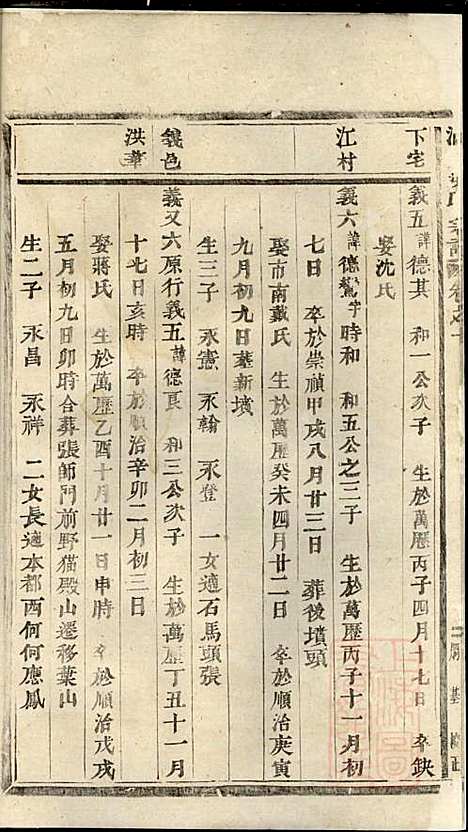 下宅
義五諱德其　和一公次子　生於萬歷丙子四月十七日　卒缺
娶沈氏
江村
義六諱德鷟字時和　和五公之三子　生於萬歷丙子十一月初
七日　卒於崇禎甲戌八月廿三日　葬後墳頭
娶市南戴氏　生於萬歷癸未四月廿二日　卒於順治庚寅
九月初九日葬新墳
生三子　永憲　永翰　永登　一女適石馬頭張
義邑
洪華
義又六原行義五諱德良　和三公次子　生於萬歷丁丑十一月
十七日亥時　卒於順治辛卯二月初三日
娶蔣氏　生於萬歷乙酉十月廿一日申時　卒於順治戊戌
五月初九日卯時合葬張師門前野猫殿山遷移葉山
生二子　永昌　永祥　二女長適本都西何何應鳳